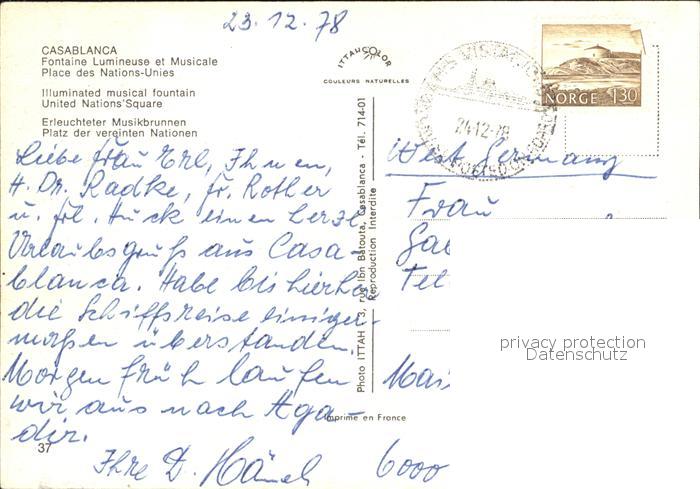 23.12.78
CASABLANCA
Fontaine Lumineuse et Musicale
Place des Nations-Unies
Illuminated musical fountain
United Nations'Square
Erleuchteter Musikbrunnen
Platz der vereinten Nationen
ITTAHCOLOR
COULEURS NATURELLES
NORGE 130
24.12.78
Liebe Frau Erl, Ihnen,
H. Dr. Radke, fr. Rother
u. frl. Huck einen herzl.
Urlaubsgruß aus Casa-
blanca. Habe bis hierher
die Schiffsreise einiger-
maßen überstanden.
Morgen früh laufen
wir aus nach Aga-
dir.
Ihre D.
37
Photo ITTAH - 3, rue Ibn Batouta, Casablanca - Tél. 714-01
Reproduction Interdite
Imprime en France
West Germany
Frau
Tel
6000
privacy protection
Datenschutz